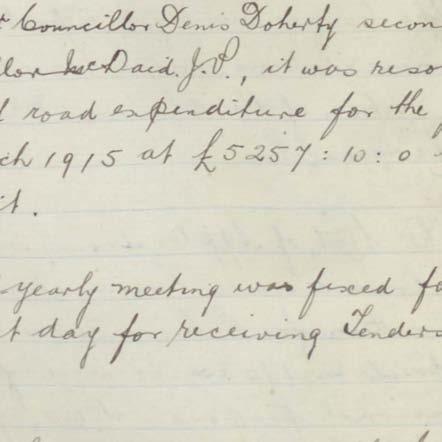 Councillor Denis Doherty secon
llor McDaid. J.P., it was reso
road expenditure for the
ch 1915 at £5257:10:0
it.
yearly meeting was fixed fo
t day for receiving Tenders